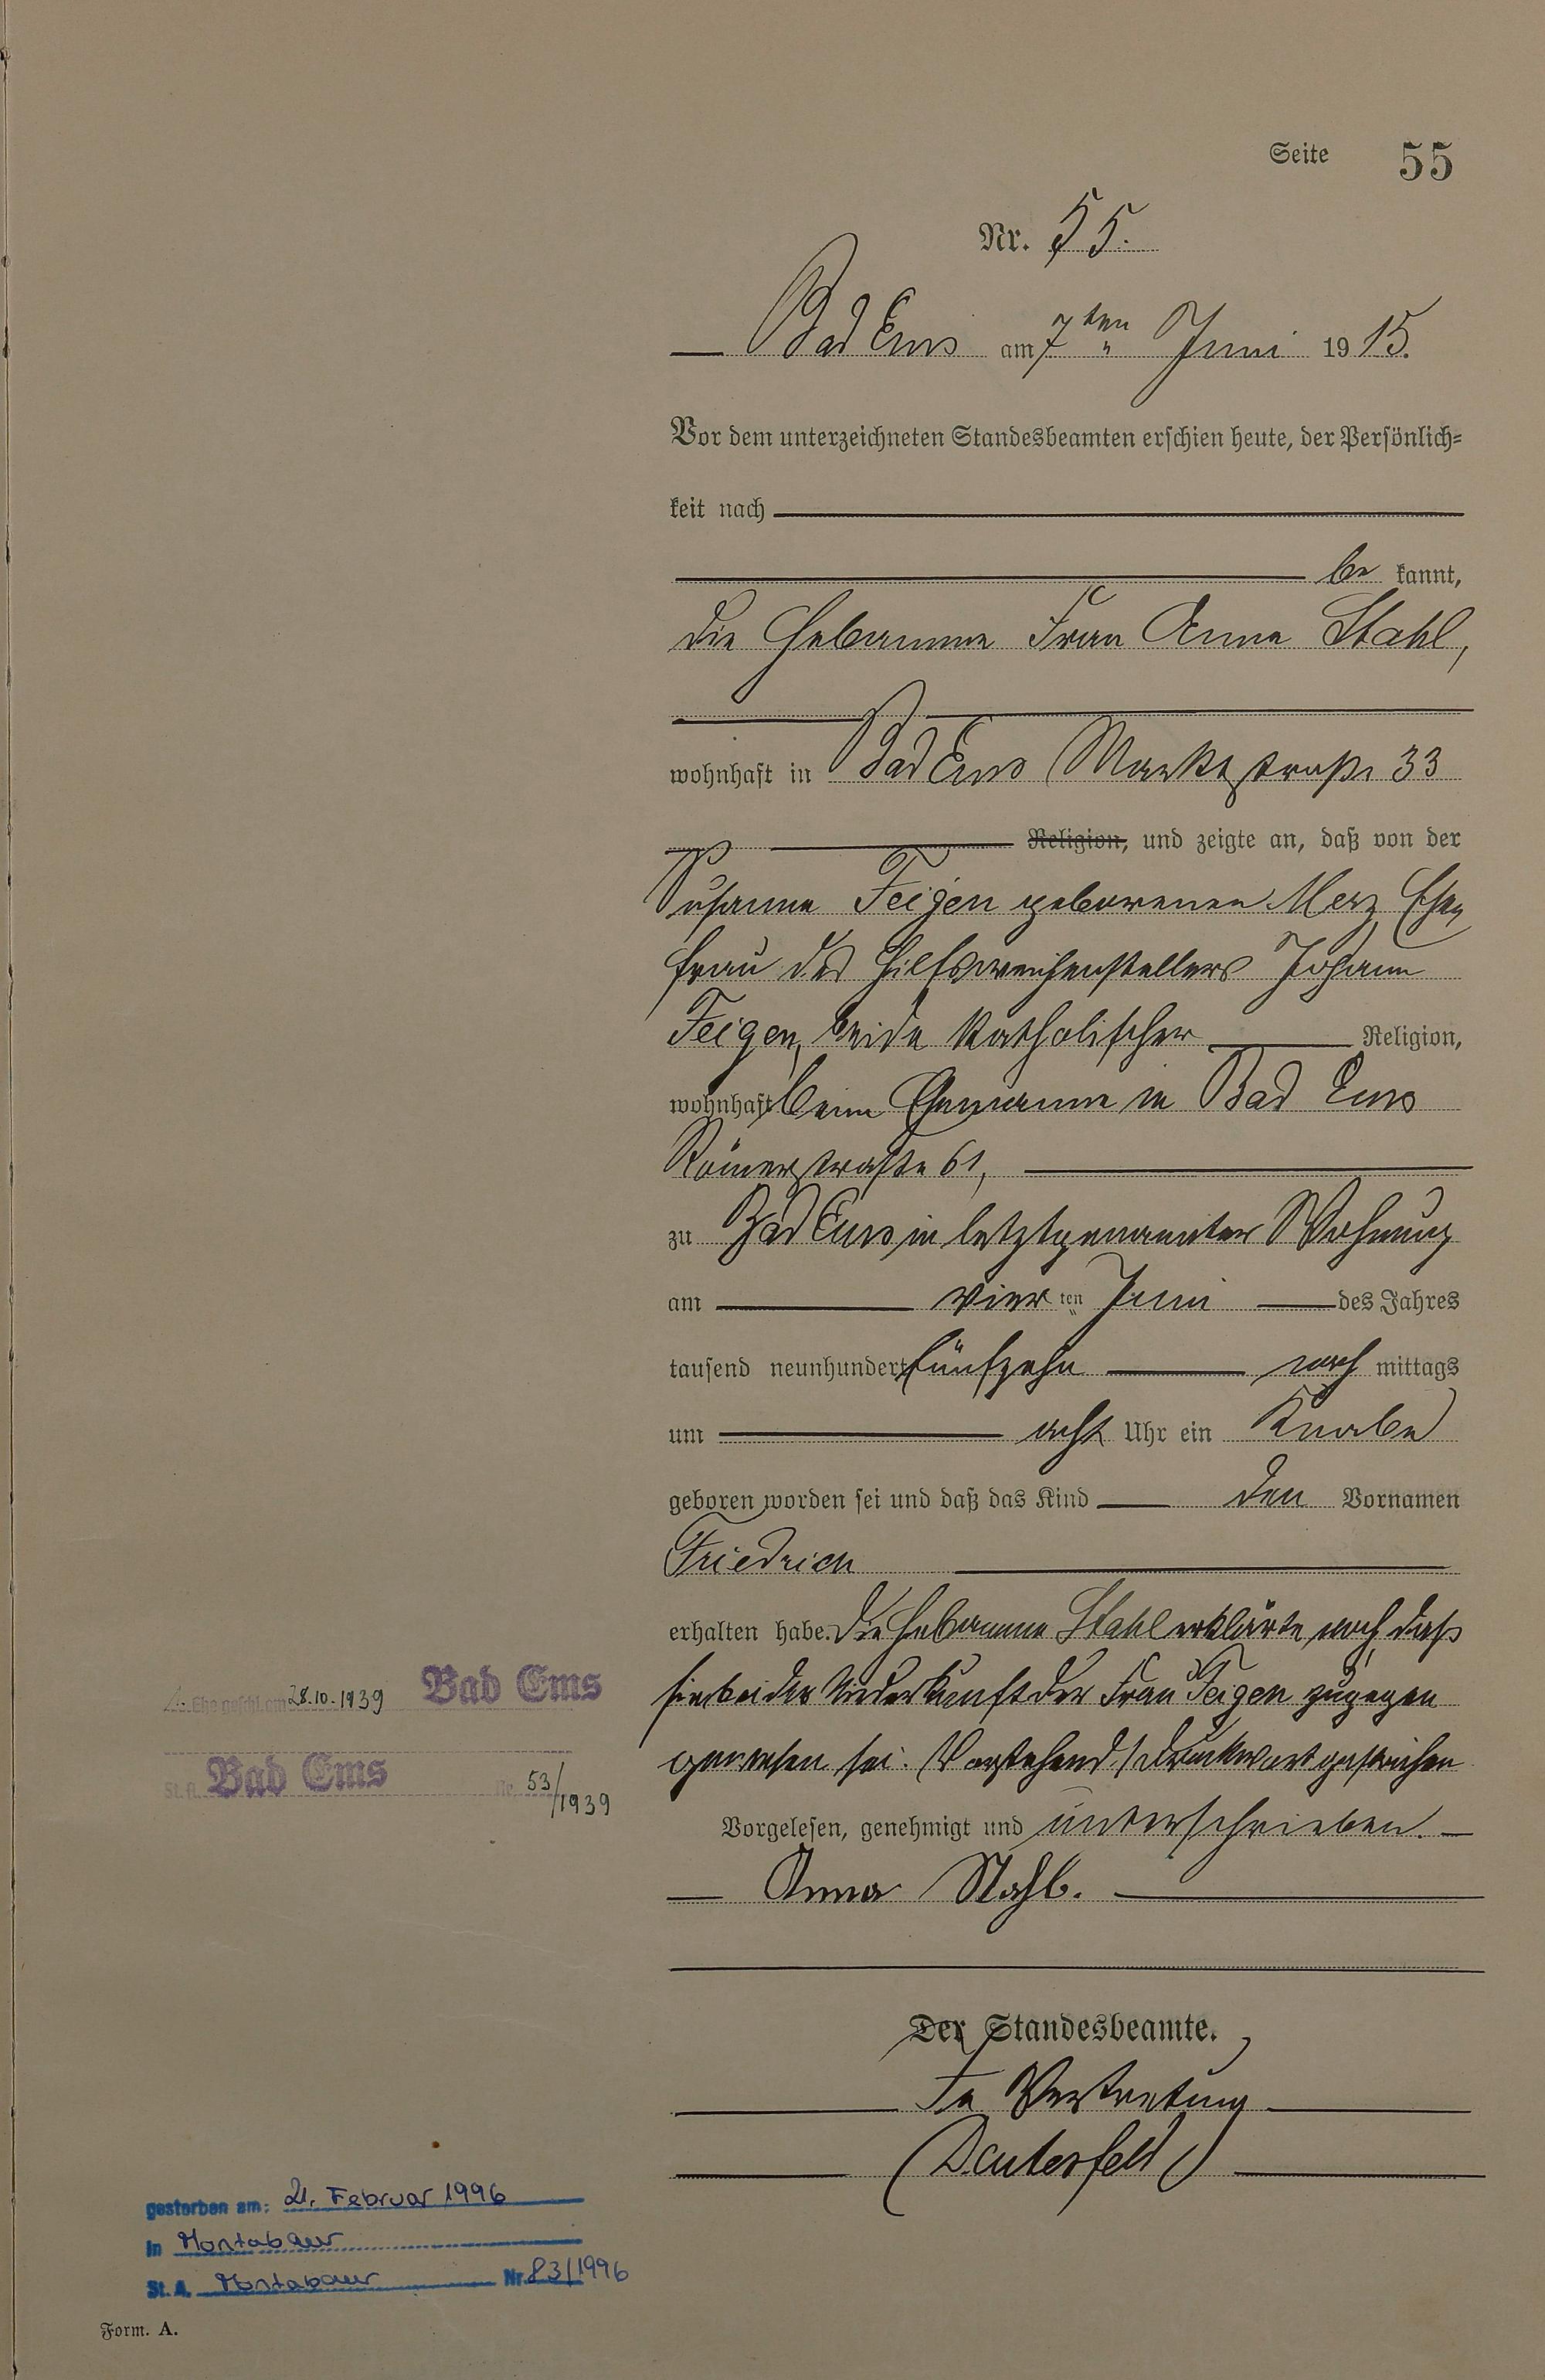 Seite 55
Nr. 55.
Bad Ems am 7ten Juni 1915.
Vor dem unterzeichneten Standesbeamten erschien heute, der Persönlich=
keit nach
be kannt,
die Hebamme Frau Anna Stahl,
wohnhaft in Bad Ems Marktstraße 33
Religion, und zeigte an, daß von der
Susanna Feigen geborenen Merz Ehe,
frau des Hilfsweichenstellers Johann
Feigen, beide katholischer Religion,
wohnhaft beim Ehemanne in Bad Ems
Römerstraße 61,
zu Bad Ems in letztgenannter Wohnung
am vier ten Juni des Jahres
tausend neunhundert fünfzehn nach mittags
um acht Uhr ein Knabe
geboren worden sei und daß das Kind den Vornamen
Friedrich
erhalten habe. Die Hebamme Stahl erklärte noch, daß
sie bei der Niederkunft der Frau Feigen zugegen
gewesen sei. Vorstehend 1 Druckwort gestrichen
Vorgelesen, genehmigt und unterschrieben.
Anna Stahl.
Der Standesbeamte.
In Vertretung
1. Ehe geschl. am 28.10.1939 Bad Ems
St. A. Bad Ems Nr. 53/1939
gestorben am: 21. Februar 1996
in Montabaur
St. A. Montabaur Nr. 83/1996
Form. A.